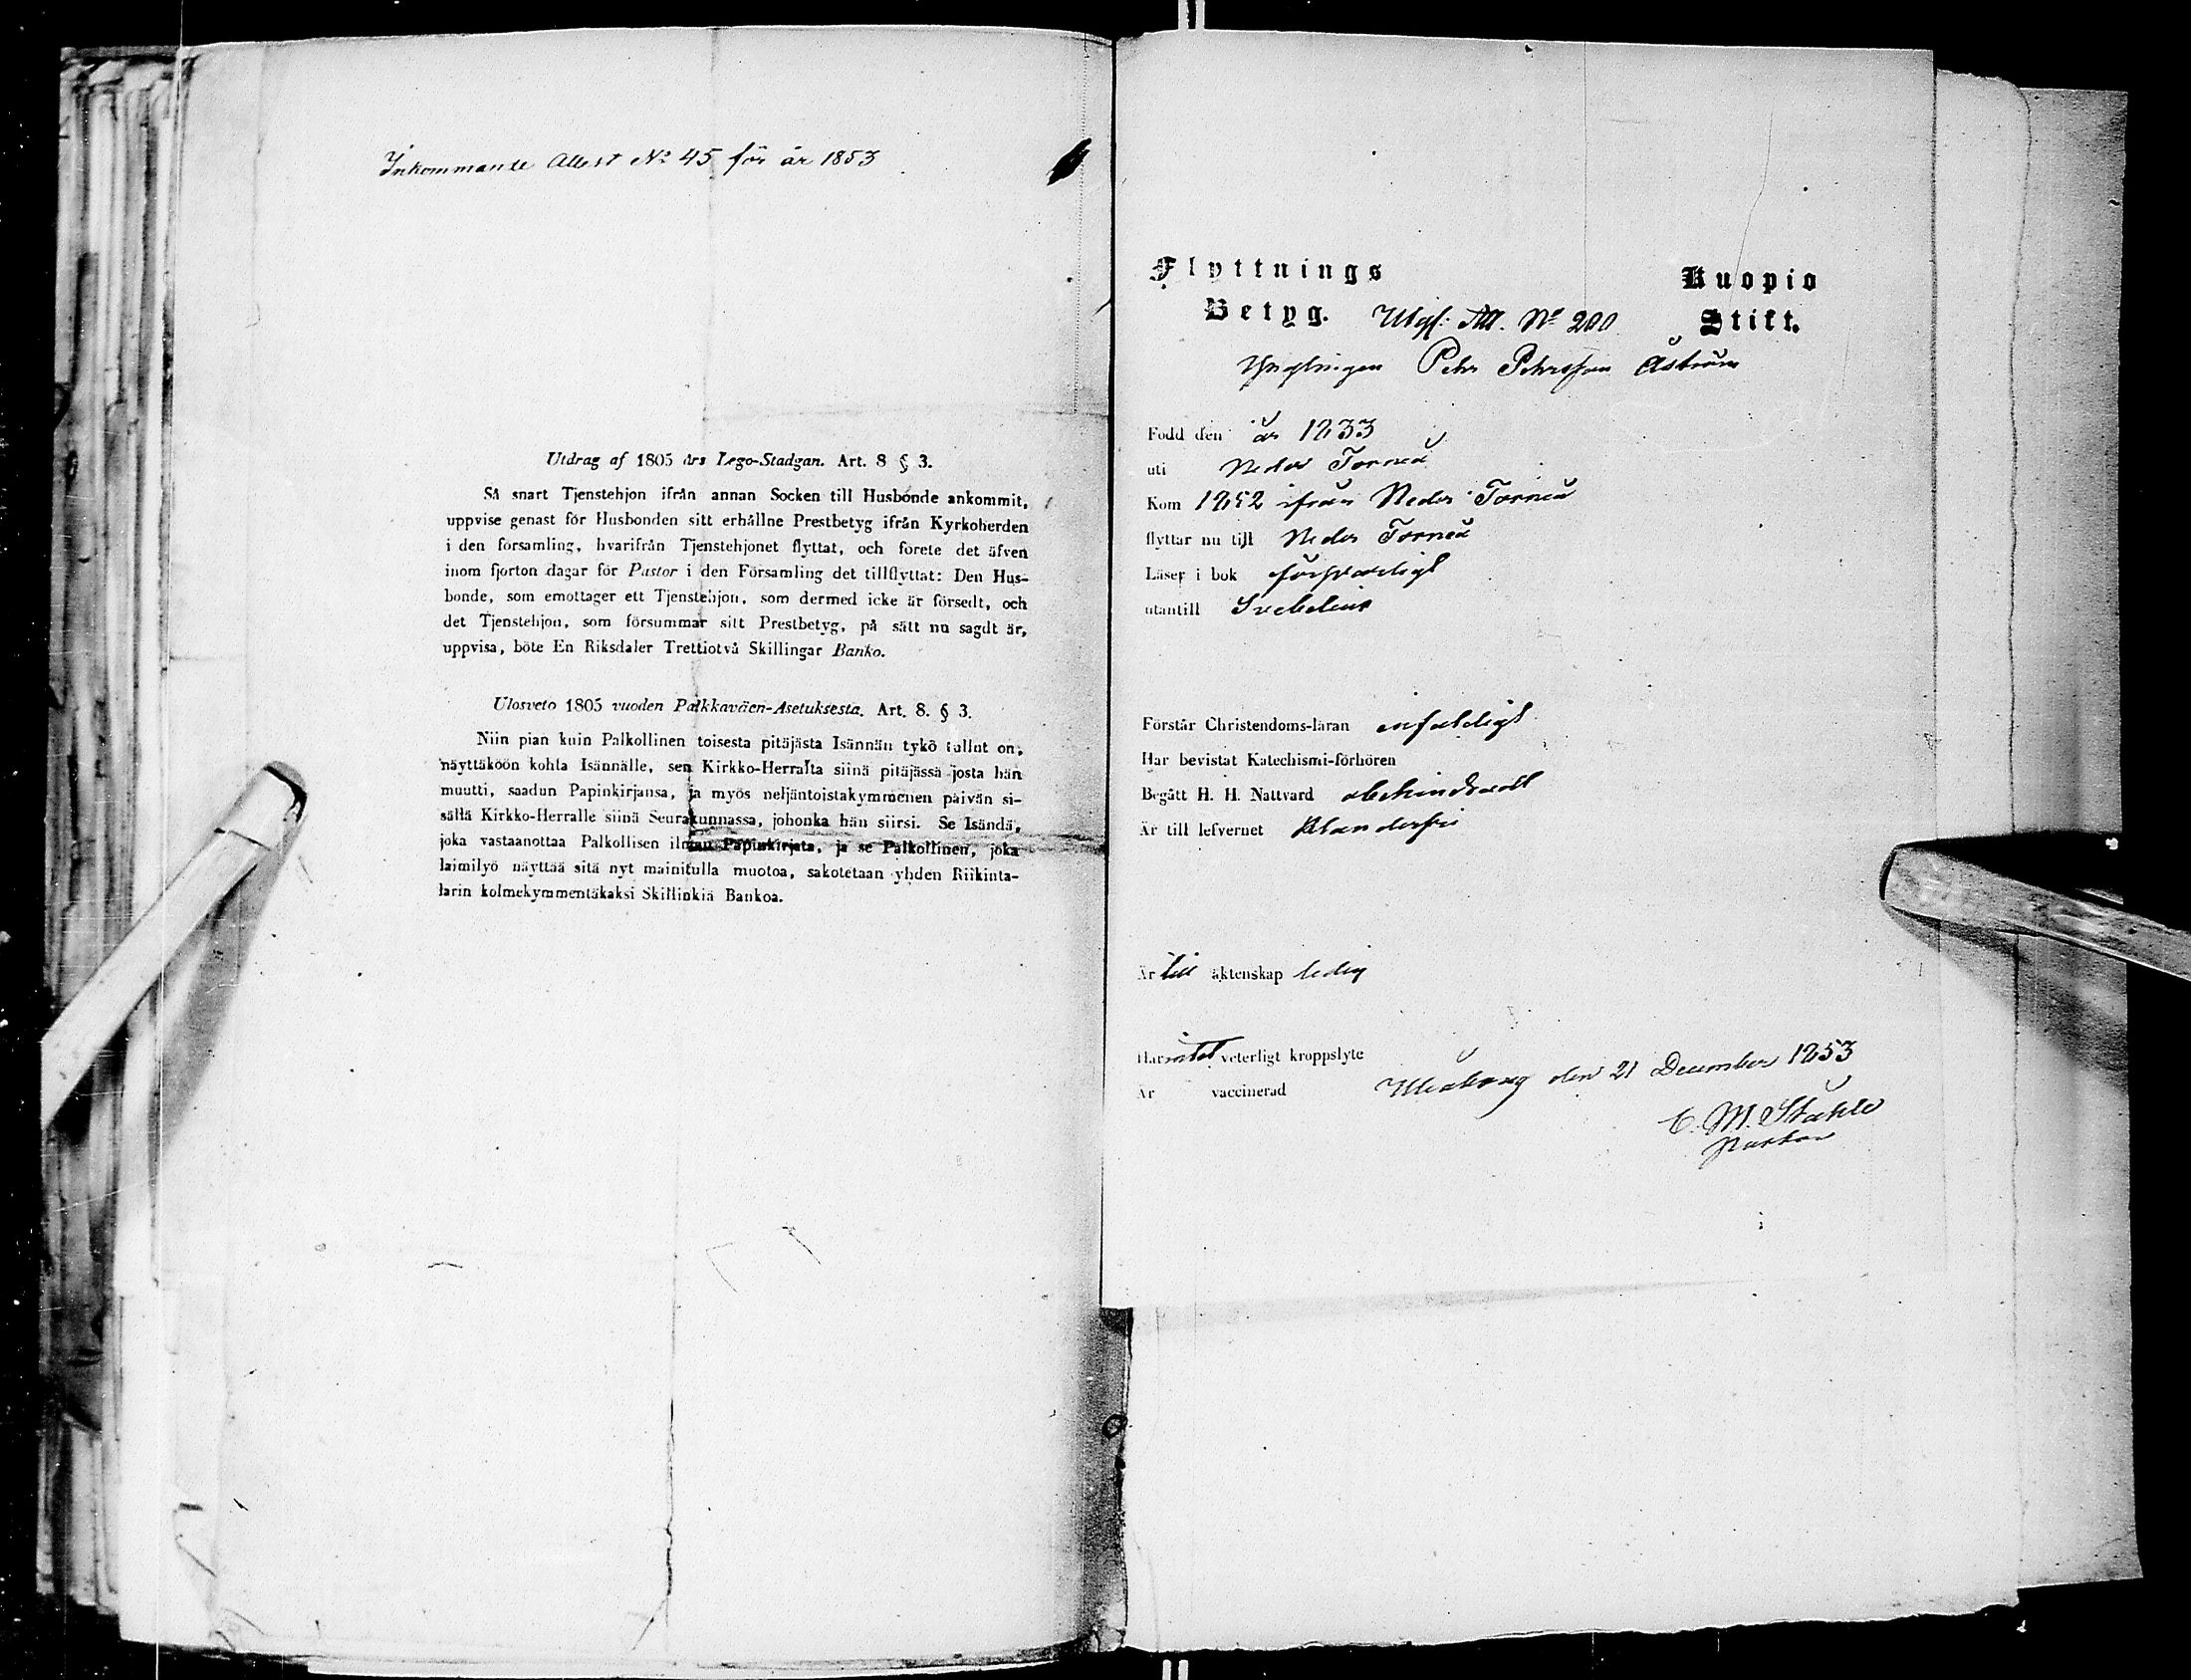 Inkommande Attest No 45 för år 1853
Utdrag af 1805 års Lego-Stadgan. Art. 8 § 3.
Så snart Tjenstehjon ifrån annan Socken till Husbonde ankommit,
uppvise genast för Husbonden sitt erhållne Prestbetyg ifrån Kyrkoherden
i den församling, hvarifrån Tjenstehjonet flyttat, och förete det äfven
inom fjorton dagar för Pastor i den Församling det tillflyttat: Den Hus-
bonde, som emottager ett Tjenstehjon, som dermed icke är försedt, och
det Tjenstehjon, som försummar sitt Prestbetyg, på sätt nu sagdt är,
uppvisa, böte En Riksdaler Trettiotvå Skillingar Banko.
Ulosveto 1805 vuoden Palkkaväen-Asetuksesta. Art. 8. § 3.
Niin pian kuin Palkollinen toisesta pitäjästä Isännän tykö tullut on,
näyttäköön kohta Isännälle, sen Kirkko-Herralta siinä pitäjässä josta hän
muutti, saadun Papinkirjansa, ja myös neljäntoistakymmenen päivän si-
sällä Kirkko-Herralle siinä Seurakunnassa, johonka hän siirsi. Se Isändä,
joka vastaanottaa Palkollisen ilman Papinkirjata, ja se Palkollinen, joka
laimilyö näyttää sitä nyt mainitulla muotoa, sakotetaan yhden Riikinta-
larin kolmekymmentäkaksi Skillinkiä Bankoa.
Flyttnings
Betyg.
Utgf: Att. No 200
Kuopio
Stift.
Ynglingen Pehr Pehrsson Åström
Född den år 1833
uti Neder Torneå
Kom 1852 ifrån Neder Torneå
flyttar nu till Neder Torneå
Läser i bok försvarligt
utantill Svebelius
Förstår Christendoms-läran enfaldigt
Har bevistat Katechismi-förhören
Begått H. H. Nattvard obehindradt
Är till lefvernet klanderfri
Är till äktenskap ledig
Har intet veterligt kroppslyte
Är vaccinerad
Uleåborg den 21 December 1853
C. M. Ståhle
Pastor